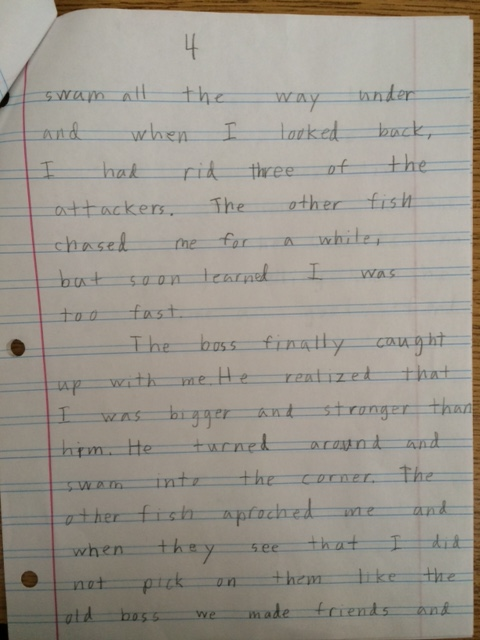 4
swam all the way under
and when I looked back,
I had rid three of the
attackers. The other fish
chased me for a while,
but soon learned I was
too fast.
The boss finally caught
up with me. He realized that
I was bigger and stronger than
him. He turned around and
swam into the corner. The
other fish aproched me and
when they see that I did
not pick on them like the
old boss we made friends and